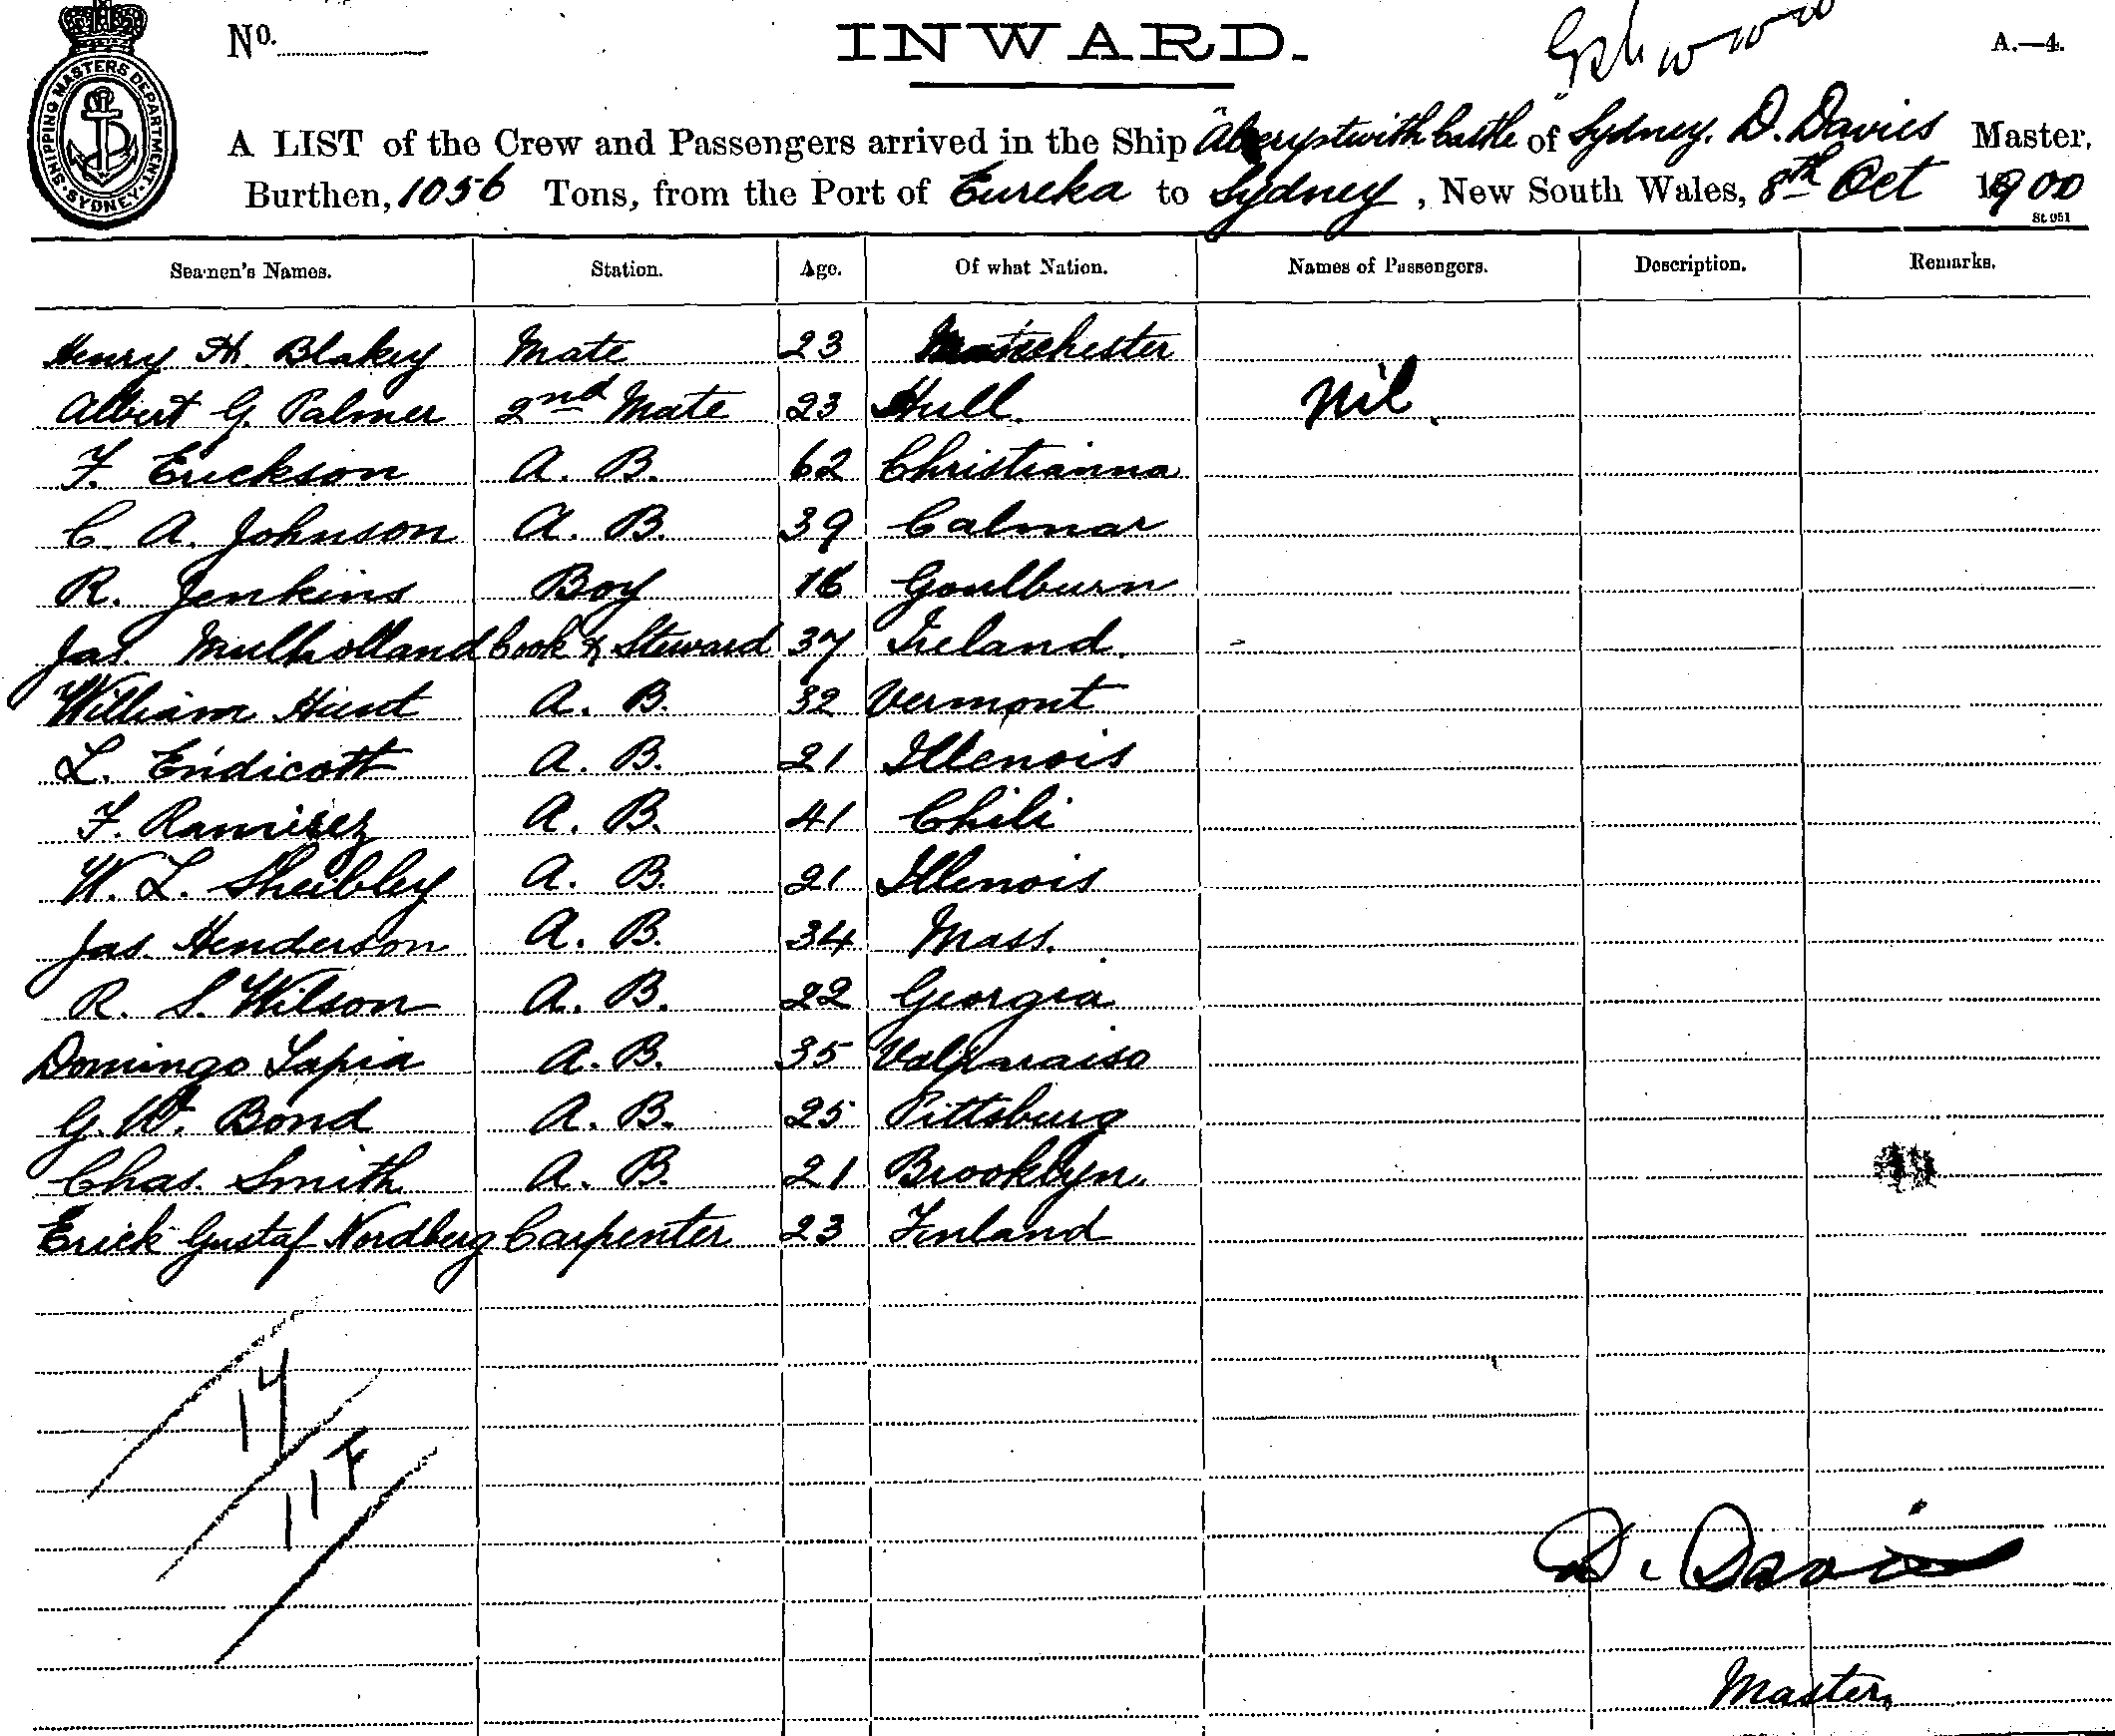 SHIPPING MASTERS DEPARTMENT. SYDNEY.
No.
INWARD.
A.—4.
A LIST of the Crew and Passengers arrived in the Ship "Aberystwith Castle" of Sydney. D. Davies Master,
Burthen, 1056 Tons, from the Port of Eureka to Sydney, New South Wales, 8th Oct 1900
St 951
Seamen's Names. Station. Age. Of what Nation. Names of Passengers. Description. Remarks.
Henry H. Blakey Mate 23 Manchester
Albert G. Palmer 2nd Mate 23 Hull. Nil.
F. Erickson A. B. 62 Christianna
C. A. Johnson A. B. 39 Calmar
R. Jenkins Boy 16 Goulburn
Jas. Mulholland Cook & Steward 37 Ireland.
William Hurst A. B. 32 Vermont
L. Endicott A. B. 21 Illenois
F. Ramirez A. B. 41 Chili
W. L. Sheibley A. B. 21 Illenois
Jas. Henderson A. B. 34 Mass.
R. S. Wilson A. B. 22 Georgia
Domingo Tapia A. B. 35 Valparaiso
G. W. Bond A. B. 25 Pittsburg
Chas. Smith A. B. 21 Brooklyn.
Erick Gustaf Nordberg Carpenter 23 Finland
14
117
D. Davies
Master